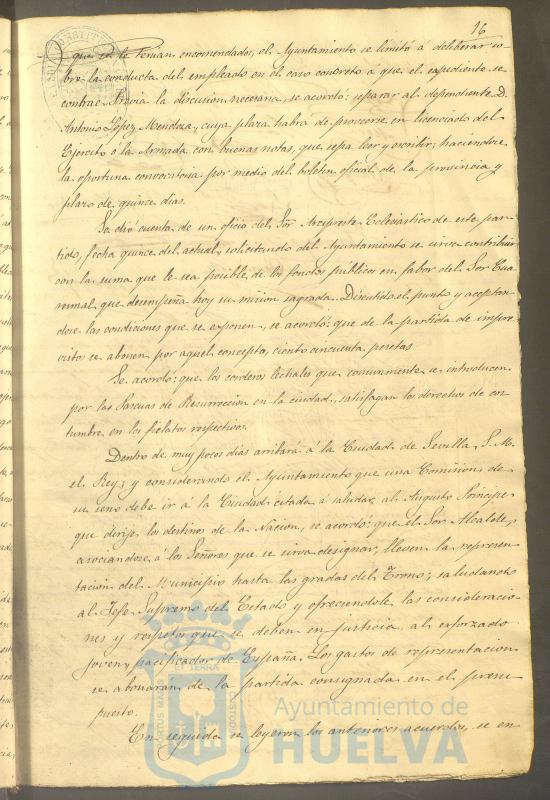 16
que se le tenian encomendados, el Ayuntamiento se limitó á deliberar so-
bre la conducta del empleado en el caso concreto á que el expediente se
contrae. Previa la discusion necesaria, se acordó: separar al dependiente D.
Antonio López Mendoza, cuya plaza habra de proveerse en licenciado del
Ejercito ó la Armada con buenas notas, que sepa leer y escribir; haciendose
la oportuna convocatoria por medio del boletin oficial de la provincia y
plazo de quince dias.
Se dió cuenta de un oficio del Sor Arcipreste Eclesiastico de este par-
tido, fecha quince del actual, solicitando del Ayuntamiento se sirva contribuir
con la suma que le sea posible, de los fondos publicos en fabor del Sor Cua-
resmal que desempeña hoy su mision sagrada. Discutido el punto y aceptan-
dose las condiciones que se exponen, se acordó: que de la partida de impre-
vistos se abonen por aquel concepto, ciento cincuenta pesetas
Se acordó: que los corderos lechales que comunmente se introducen
por las Pascuas de Resurreccion en la ciudad, satisfagan los derechos de cos-
tumbre en los fielatos respectivos.
Dentro de muy pocos dias arribará á la Ciudad de Sevilla S. M.
el Rey; y considerando el Ayuntamiento que una Comision de
su seno debe ir á la Ciudad citada á saludar al Augusto Principe
que dirije los destinos de la Nacion, se acordó: que el Sor Alcalde,
asociandose á los Señores que se sirva designar, lleven la represen-
tacion del Municipio hasta las gradas del Trono; saludando
al Jefe Supremo del Estado y ofreciendole las consideracio-
nes y respetos que se deben en justicia al esforzado
joven pacificador de España. Los gastos de representacion
se abonarán de la partida consignada en el presu
puesto.
En seguida se leyeron los anteriores acuerdos, se en
PORTUS MARIS ET TERRÆ CUSTODIA
Ayuntamiento de
HUELVA